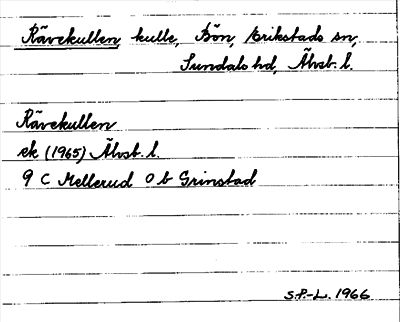 Rävekullen, kulle, Bön, Erikstads sn,
Sundals hd, Älvsb. l.
Rävekullen
ek (1965) Älvsb. l.
9 C Mellerud 0 b Grinstad
S.P.-L. 1966